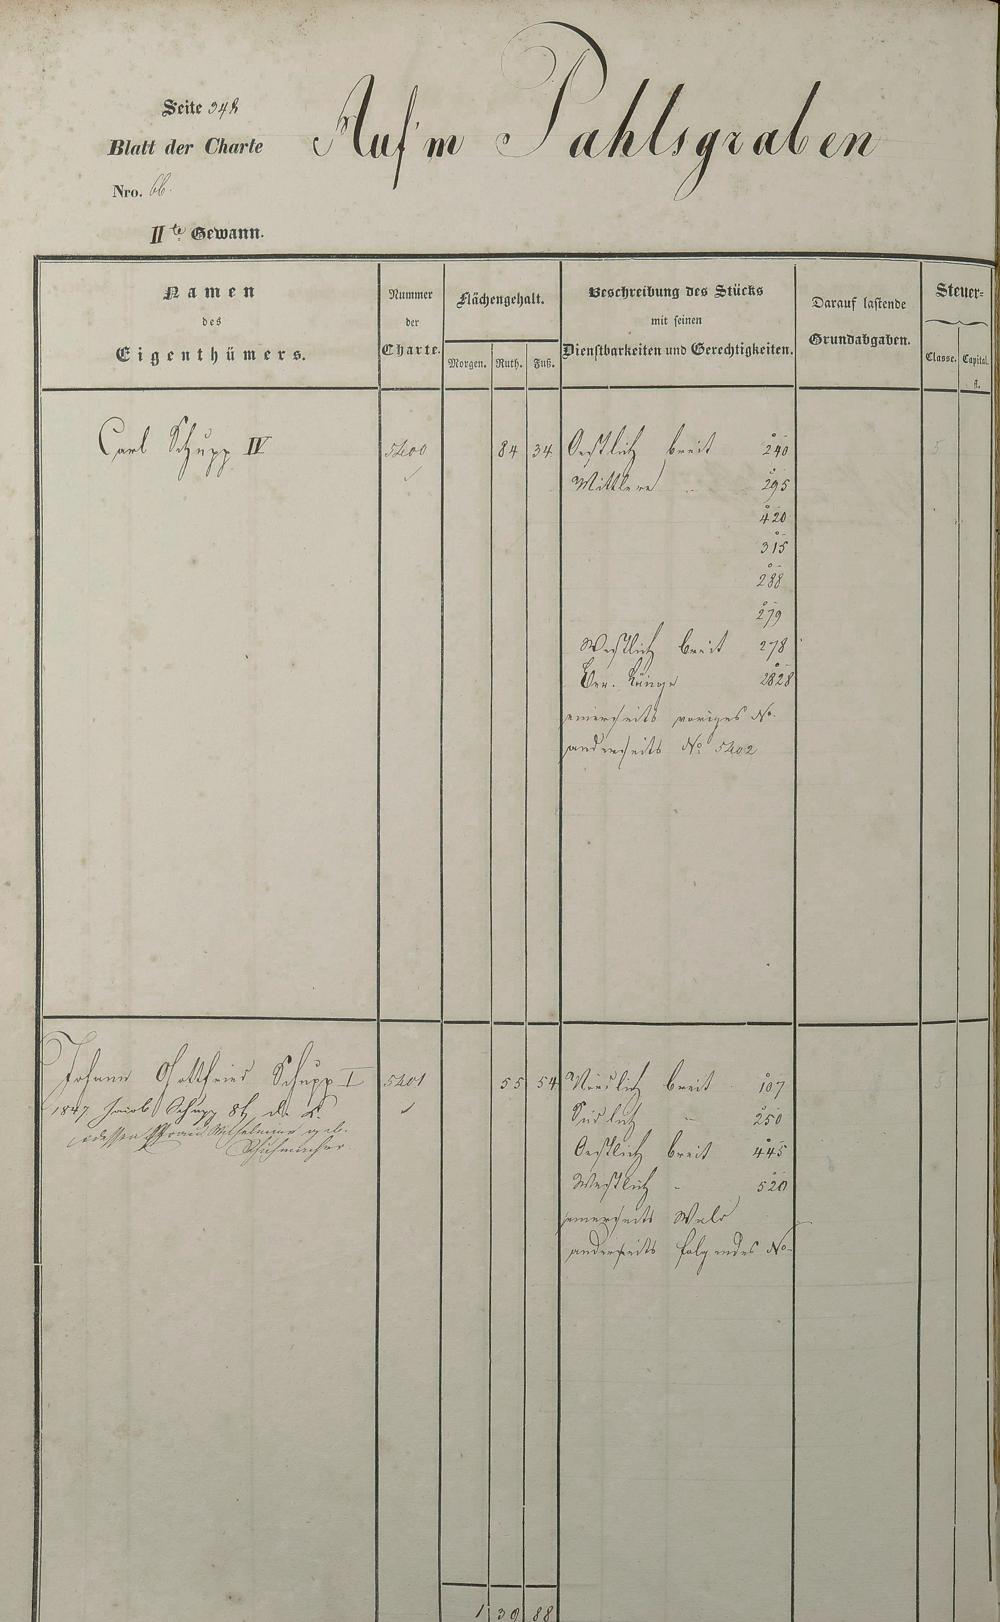 Seite 348
Blatt der Charte
Nro. 66.
IIte Gewann.
Auf'm Pahlsgraben
Namen
des
Eigenthümers.
Nummer
der
Charte.
Flächengehalt.
Morgen. Ruth. Fuß.
Beschreibung des Stücks
mit seinen
Dienstbarkeiten und Gerechtigkeiten.
Darauf lastende
Grundabgaben.
Steuer=
Classe. Capital.
fl.
Carl Schupp IV 5400 84 34 Oestlich breit 240 5
Mittlere " 295
420
315
288
279
Westlich breit 278
Ver. Länge 2828
einerseits voriges No.
anderseits No 5402
Johann Gottfried Schupp I 5401 55 54 Nördlich breit 107 5
1847 Jacob Schupp 8t
Südlich " 250
dessen Frau Wilhelmine geb.
Schuhmacher
Oestlich breit 445
Westlich " 520
einerseits Wald
anderseits folgendes No
1 39 88